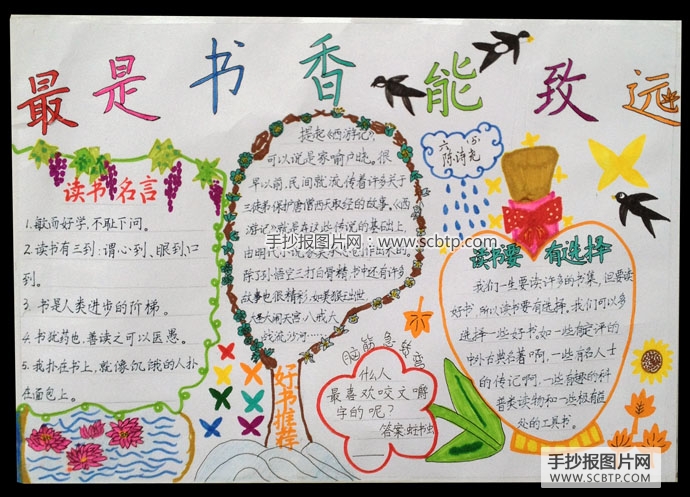 最是书香能致远
六（5）
陈诗尧
读书名言
1.敏而好学,不耻下问。
2.读书有三到:谓心到、眼到、口
到.
3.书是人类进步的阶梯。
4.书犹药也,善读之可以医愚。
5.我扑在书上,就像饥饿的人扑
在面包上。
提起《西游记》,
可以说是家喻户晓。很
早以前,民间就流传着许多关于
三徒弟保护唐僧西天取经的故事。《西
游记》就是在这些传说的基础上,
由明代小说
除了孙悟空三打白骨精,书中还有许多
故事也很精彩,如美猴王出世
大闹天宫
流沙河……
好书推荐
脑筋急转弯
什么人
最喜欢咬文嚼
字的呢?
答案:蛀书虫
读书要有选择
我们一生要读许多的书集,但要读
好书,所以读书要有选择。我们可以多
选择一些好书,如一些定评的
中外古典名著啊,一些名人士
的传记啊,一些有趣的科
普类读物和一些极有益
处的工具书。
手抄报图片网：www.scbtp.com
手抄报图片网
SCBTP.COM